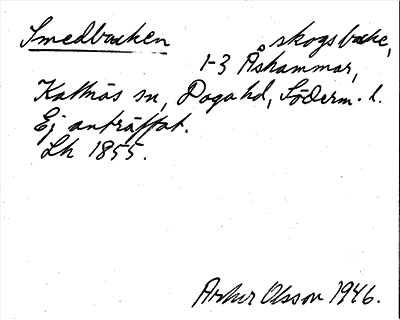 Smedbacken skogsbacke,
1-3 Åshammar,
Kattnäs sn, Daga hd, Söderm. l.
Ej anträffat.
Lk 1855.
Artur Olsson 1946.